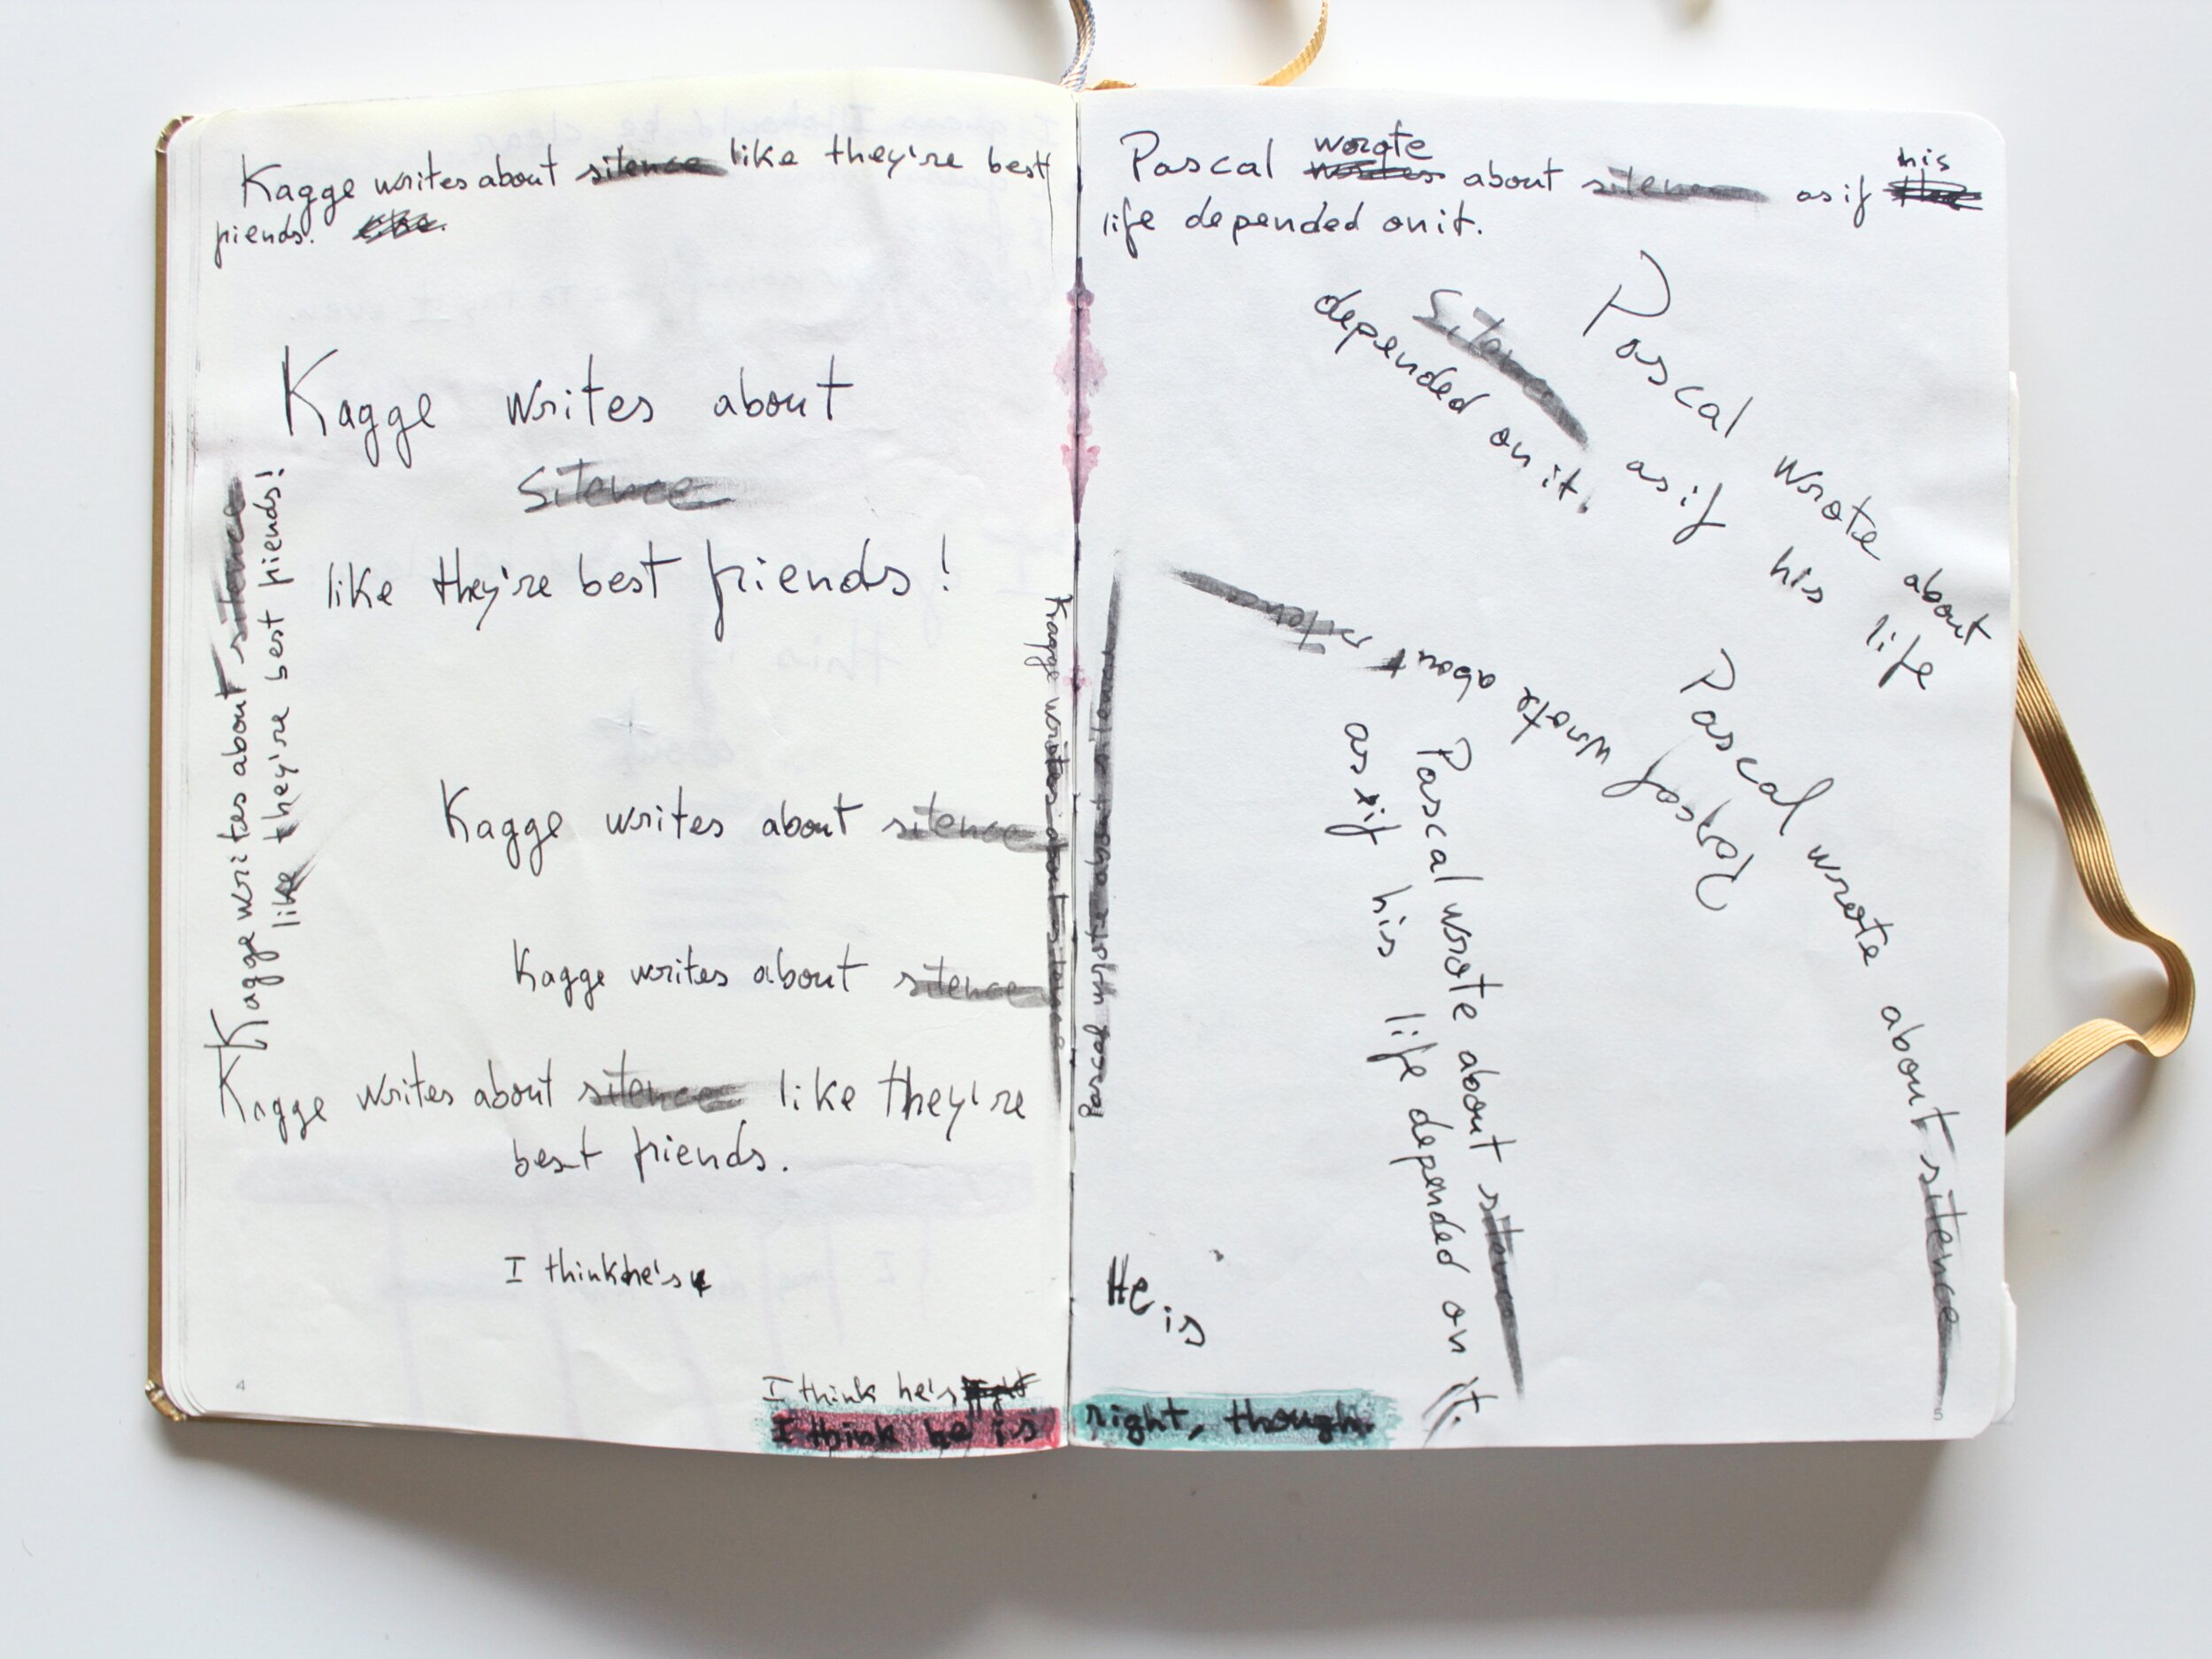 Kagge writes about silence like they're best
friends.
Kagge writes about
silence
like they're best friends!
Kagge writes about silence
like they're best friends!
Kagge writes about silence
Kagge writes about silence
Kagge writes about silence like they're
best friends.
Kagge writes about silence
I think he's
I think he's right
I think he is
4
Pascal wrote about silence as if his
life depended on it.
Pascal wrote about
silence as if his life
depended on it.
Pascal wrote about silence
Pascal wrote about silence
Pascal wrote about silence
as if his life depended on it.
Pascal wrote about silence
He is
right, though.
5